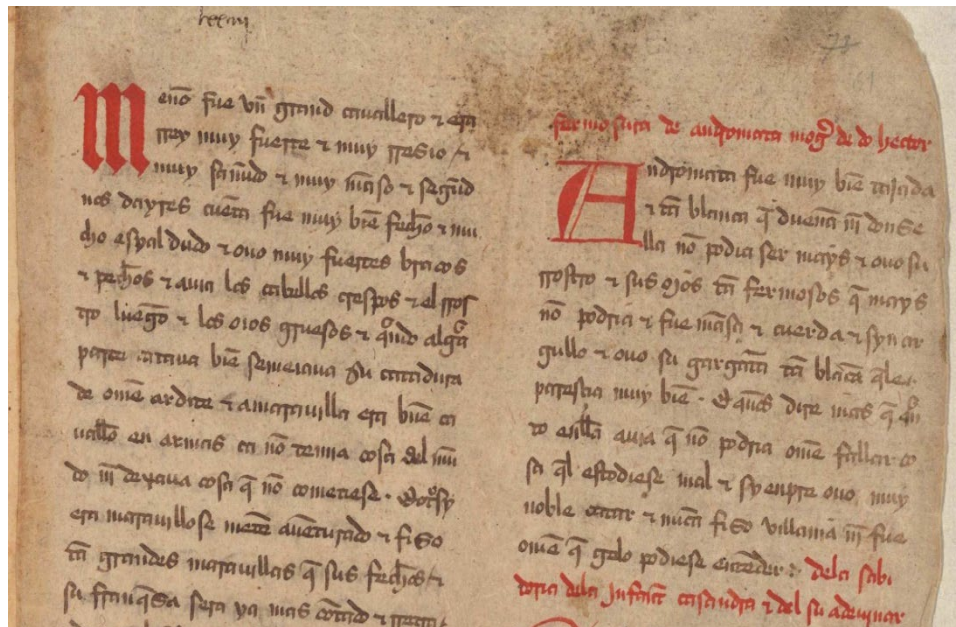 lxxiiij
71
Menõ fue vñ grand cauallero & era
rrey muy fuerte & muy rresio &
muy sañudo & muy mãso & segũd
nos dayres cuẽta fue muy biẽ fecho & mu
cho espaldudo & ouo muy fuertes braços
& pechos & auia los cabellos crespos & el rros
tro luẽgo & los oios gruesos & qᷓndo algᷓ
parte cataua biẽ semeiaua su catadura
de omẽ ardite & amarauilla era buẽ ca
uallo en armas ca nõ temia cosa del mũ
do nĩ dexaua cosa q̃ nõ cometiese.
era marauillosa mẽte auẽturado & fiso
tã grandes marauillas q̃ sus fechos &
su franq̃sa sera ya mas cõtado &
fermosura de andromata mogr̃ de dõ hector
Andromata fue muy biẽ tajada
& tã blanca q̃ dueña nĩ donse
lla nõ podia ser mays & ouo su
rrostro & sus ojos tã fermosos q̃ mays
nõ podria & fue mãsa & cuerda & syn or
gullo & ouo su gargãta tã blãca q̃le
paresçia muy biẽ. q̃
to enlla auia q̃ nõ podria omẽ fallar co
sa q̃l estodiese mal & syenpre ouo muy
noble catar & nũca fiso villania nĩ fue
omẽ q̃ gelo podiese entẽder: dela sabi
doria dela jnfãta casandra & del su adeuinar